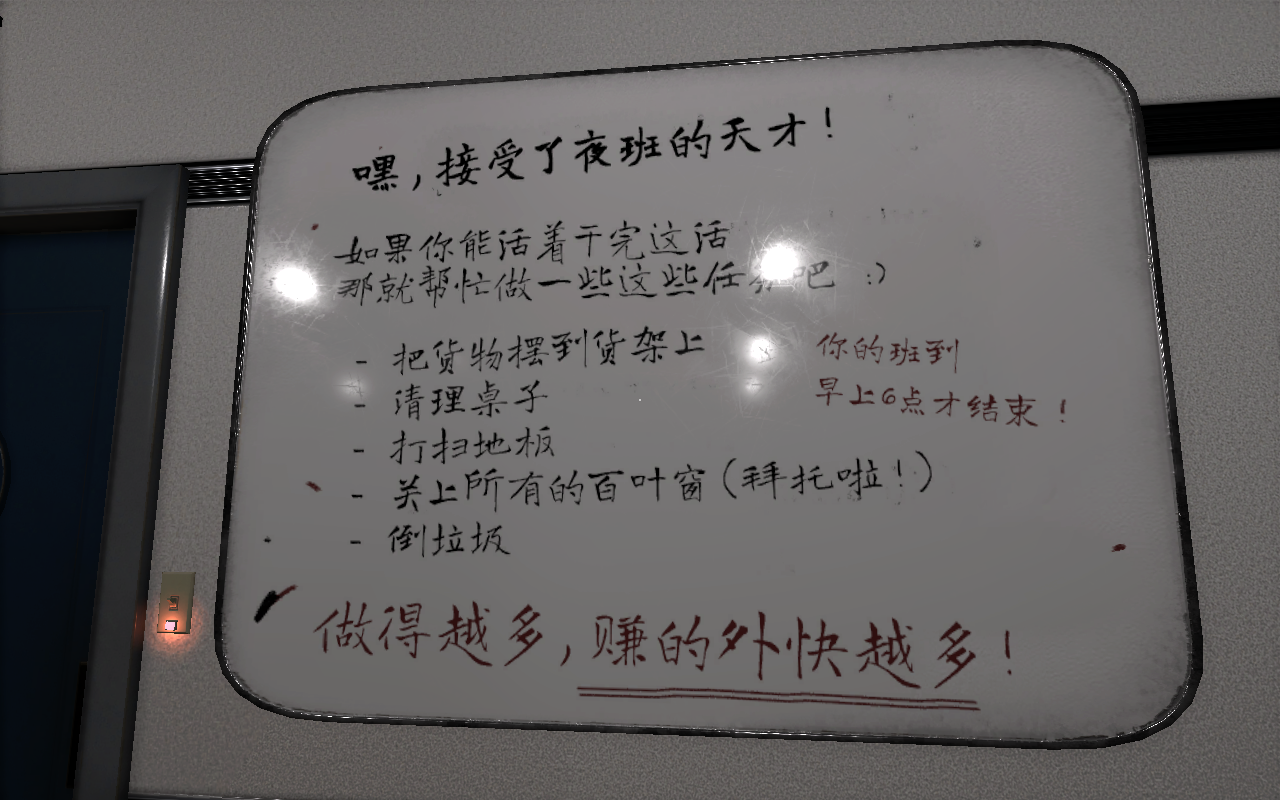 嘿，接受了夜班的天才！
如果你能活着干完这活
那就帮忙做一些这些任务吧 :)
- 把货物摆到货架上
- 清理桌子
- 打扫地板
- 关上所有的百叶窗（拜托啦！）
- 倒垃圾
你的班到
早上6点才结束！
做得越多，赚的外快越多！